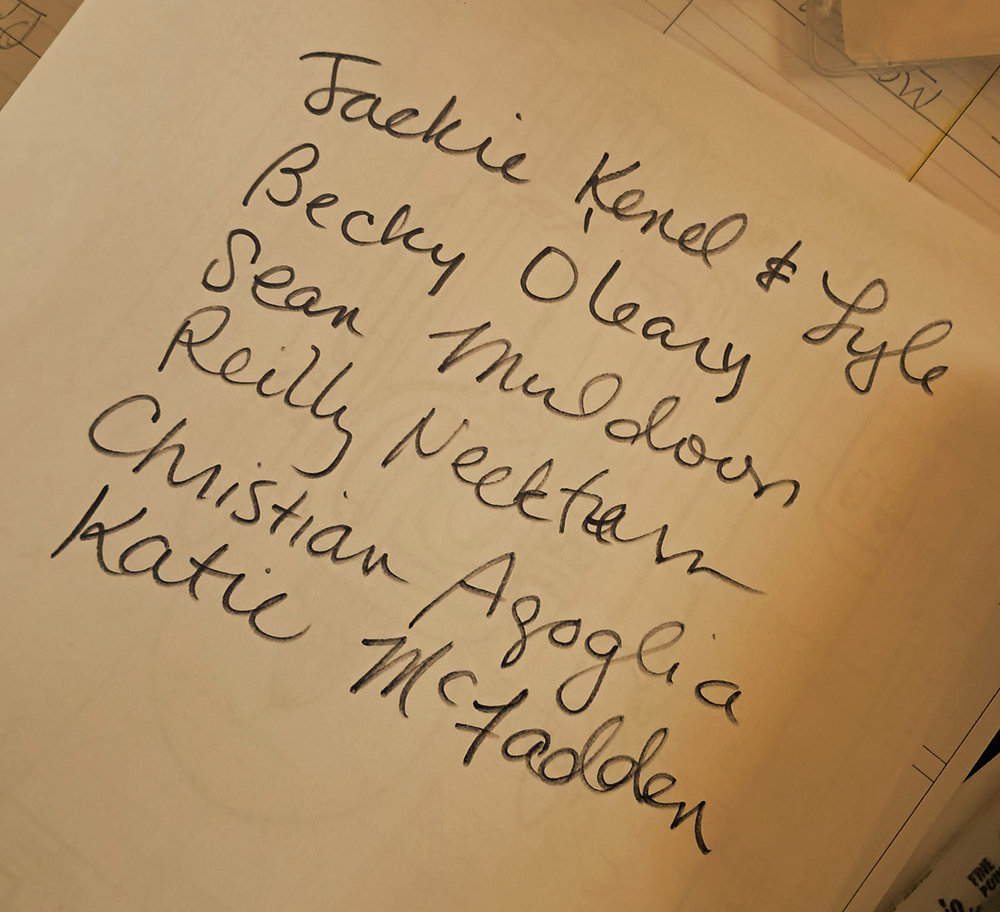 Jackie Kenel & Lyle
Becky Oleary
Sean Muldoon
Reilly Neektan
Christian Agoglia
Katie McFadden
FINE